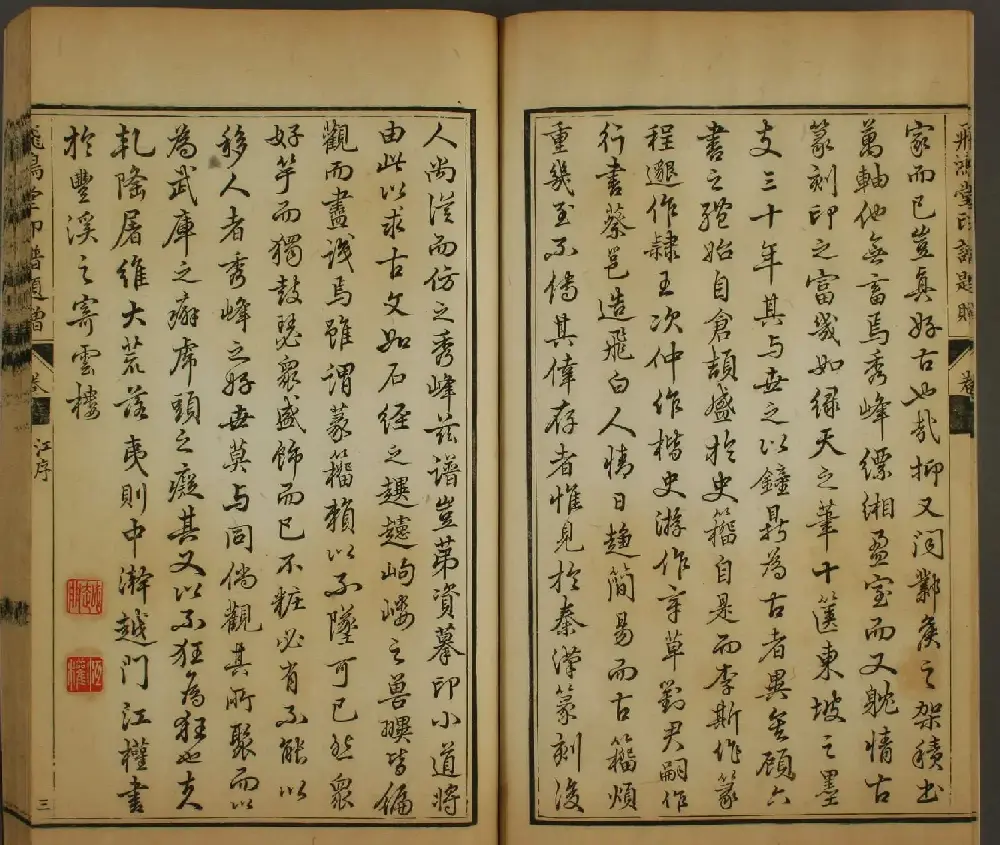 飛鴻堂印譜題贈 卷
家而已豈真好古也哉抑又聞鄴矦之架積書
萬軸他無畜焉秀峰縹緗盈室而又躭情古
篆刻印之富幾如綠天之筆十篋東坡之墨
支三十年其與世之以鐘鼎為古者異矣顧六
書之蹤始自倉頡盛於史籀自是而李斯作篆
程邈作隸王次仲作楷史游作章草劉君嗣作
行書蔡邕造飛白人情日趨簡易而古籀煩
重幾至不傳其僅存者惟見於秦漢篆刻後
人尚從而仿之秀峰茲譜豈苐資摹印小道將
由此以求古文如石經之岣嶁之獸皆備
觀而盡識焉雖謂篆籀賴以不墜可已然眾
好竽而獨鼓瑟眾盛飾而已不粧必有不能以
移人者秀峰之好世莫與同倘觀其所聚而以
為武庫之癖虎頭之癡其又以不狂為狂也夫
乹隆屠維大荒落夷則中澣越門江權書
於豐溪之寄雲樓
飛鴻堂印譜題贈 卷 江序 三